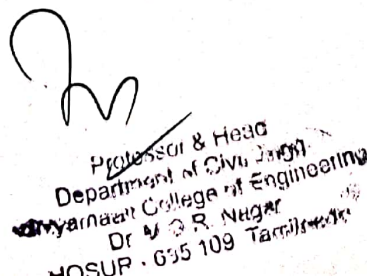 Professor & Head
Department of Civil Engg.
College of Engineering
Dr. M G R. Nagar
HOSUR - 635 109 Tamilnadu